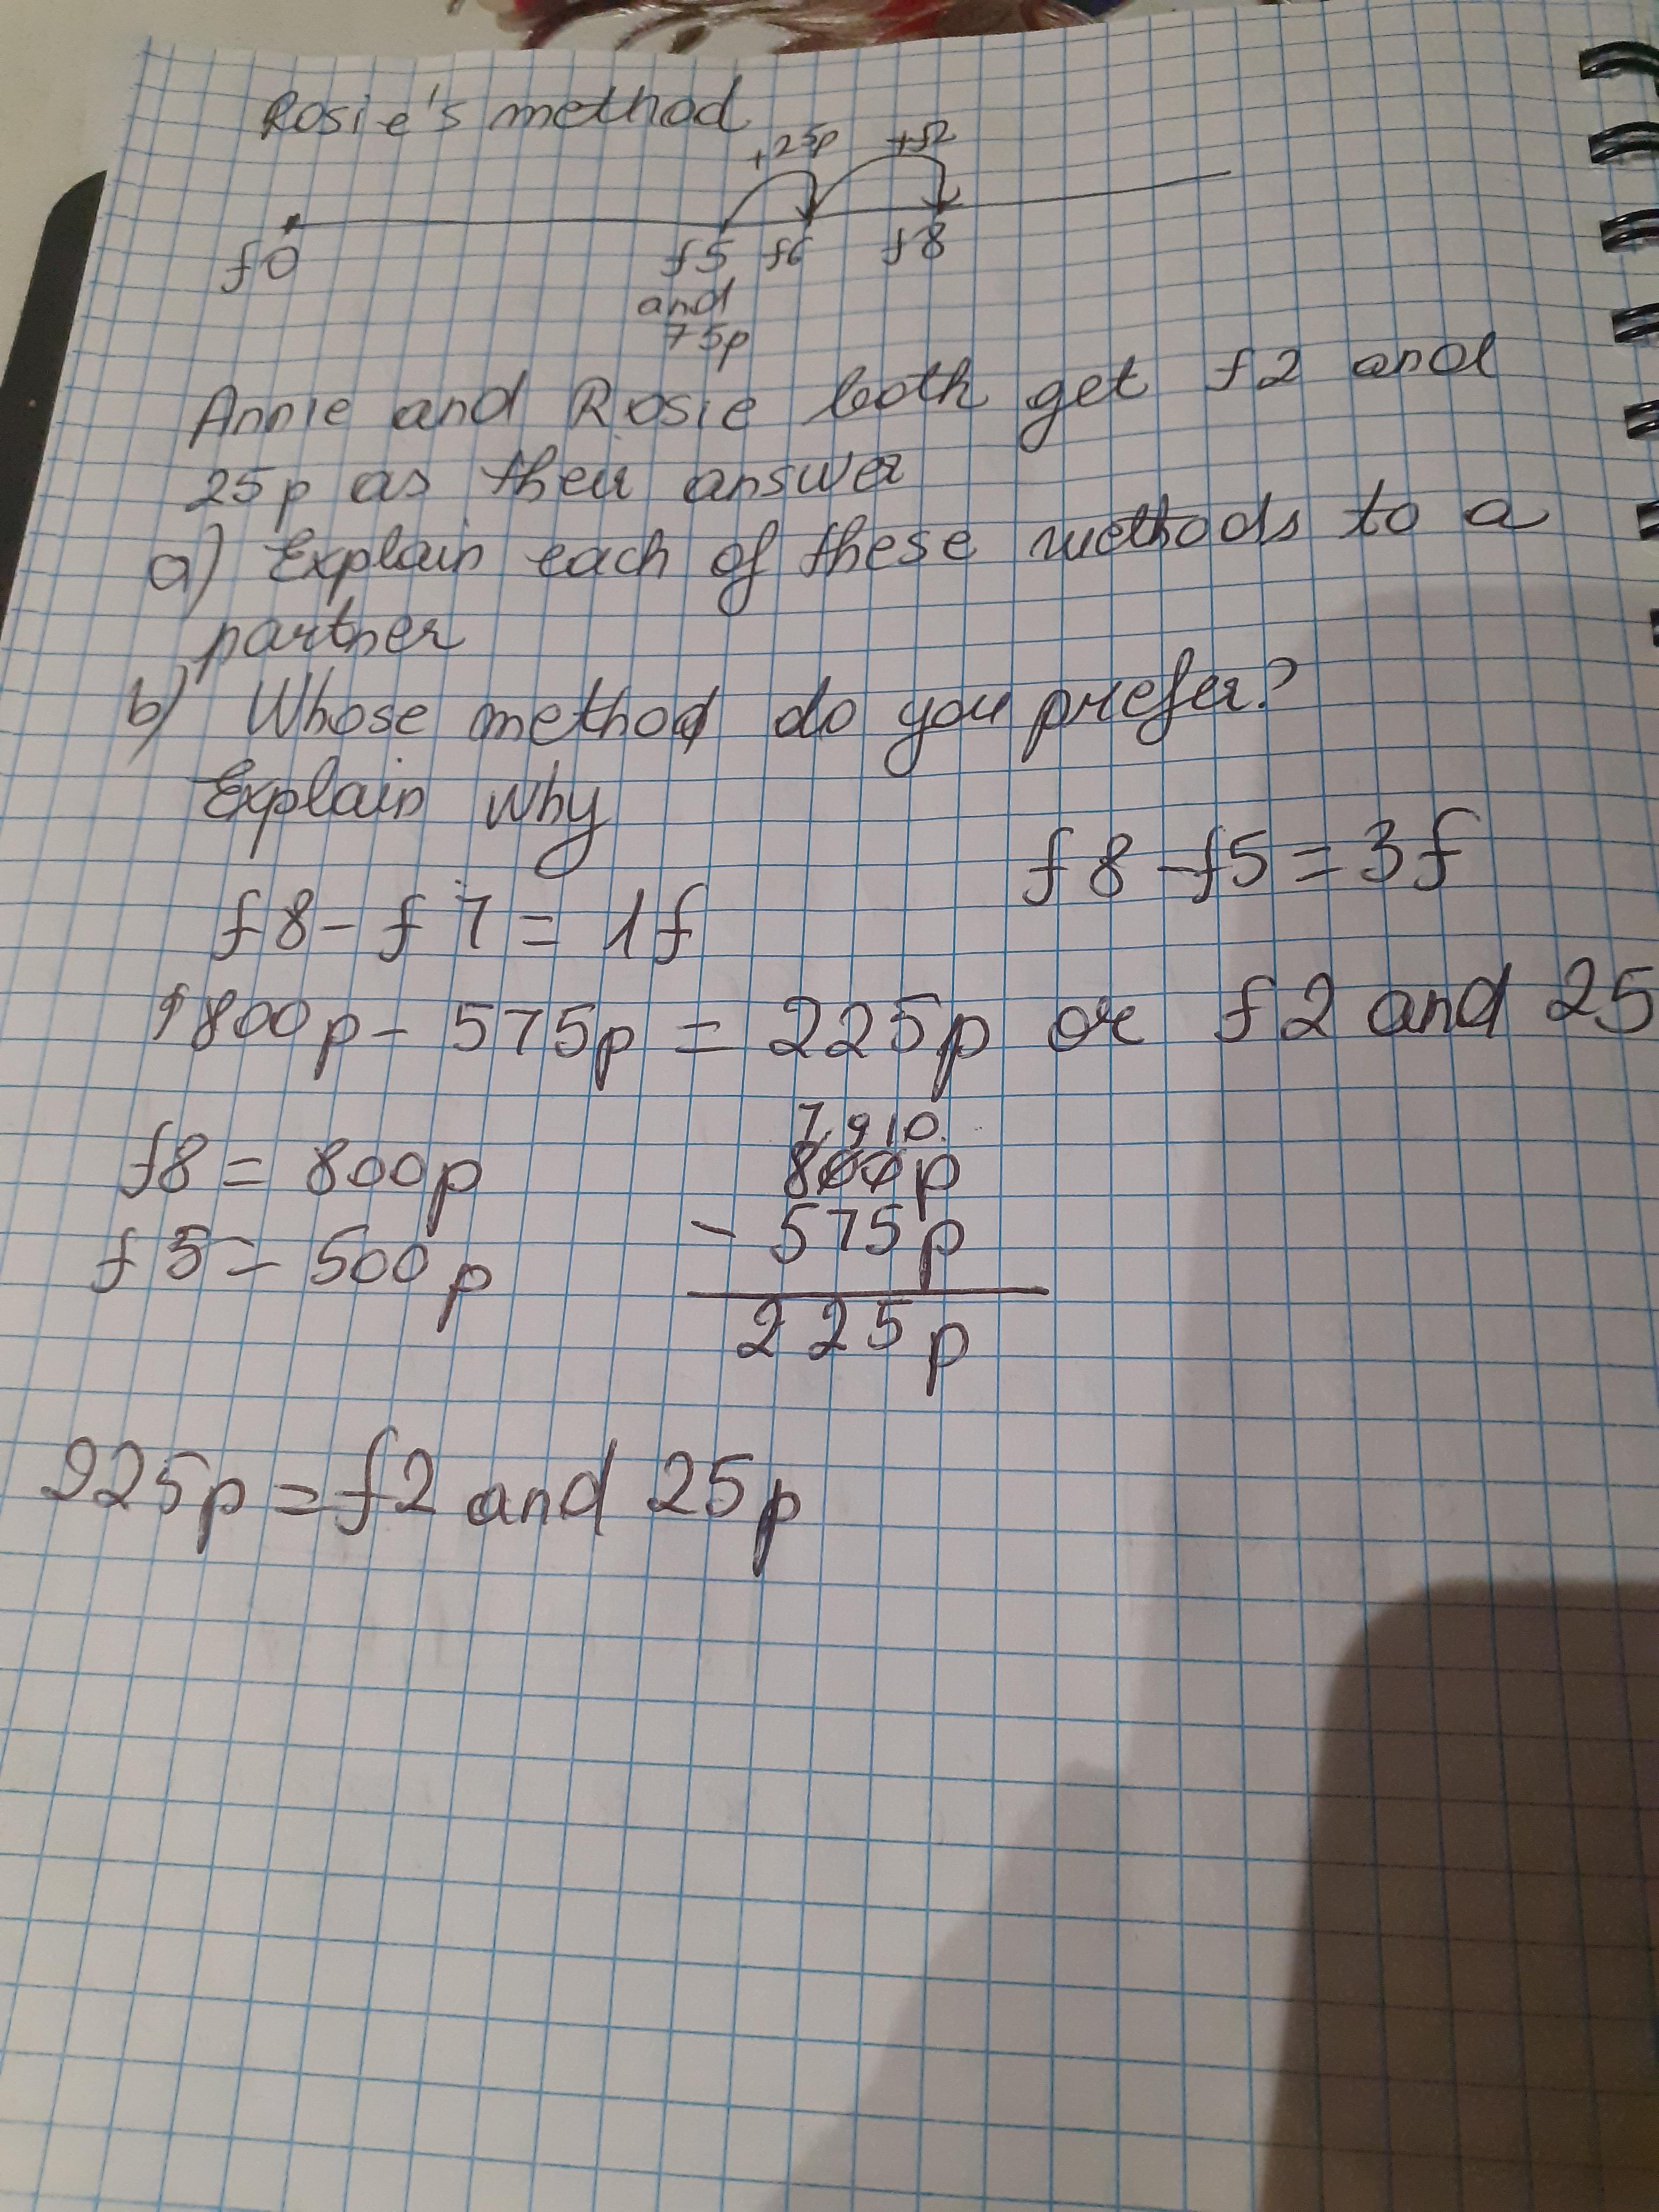 Rosie's method
+25p +£2
£0 £5 £6 £8
and
75p
Annie and Rosie both get £2 and
25p as their answer
a) Explain each of these methods to a
partner
b) Whose method do you prefer?
Explain why
£8 - £5 = 3£
£8 - £7 = 1£
800p - 575p = 225p or £2 and 25
7 9 10
£8 = 800p 800p
£5 = 500p - 575p
225p
225p = £2 and 25p